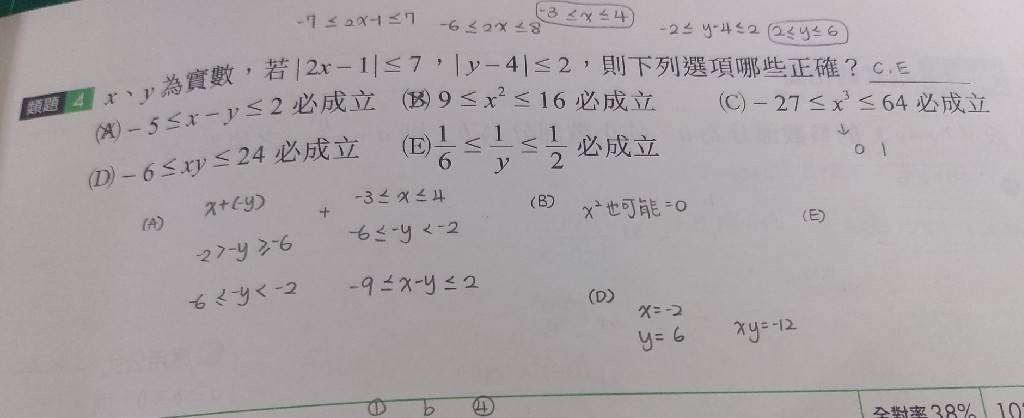 -7 ≤ 2x-1 ≤ 7 -6 ≤ 2x ≤ 8 -3 ≤ x ≤ 4 -2 ≤ y-4 ≤ 2 2≤y≤6
類題 4 x、y 為實數,若 |2x−1| ≤ 7,|y−4| ≤ 2,則下列選項哪些正確? C.E
(A) −5 ≤ x−y ≤ 2 必成立 (B) 9 ≤ x² ≤ 16 必成立 (C) −27 ≤ x³ ≤ 64 必成立
↓
0 1
(D) −6 ≤ xy ≤ 24 必成立 (E) 1/6 ≤ 1/y ≤ 1/2 必成立
(A) x+(-y) + -3 ≤ x ≤ 4 (B) x² 也可能=0 (E)
-2>-y≥-6 -6 ≤ -y < -2
-6 ≤ -y < -2 -9 ≤ x-y ≤ 2
(D) x=-2
y=6 xy=-12
① b ④
全對率 38% 10